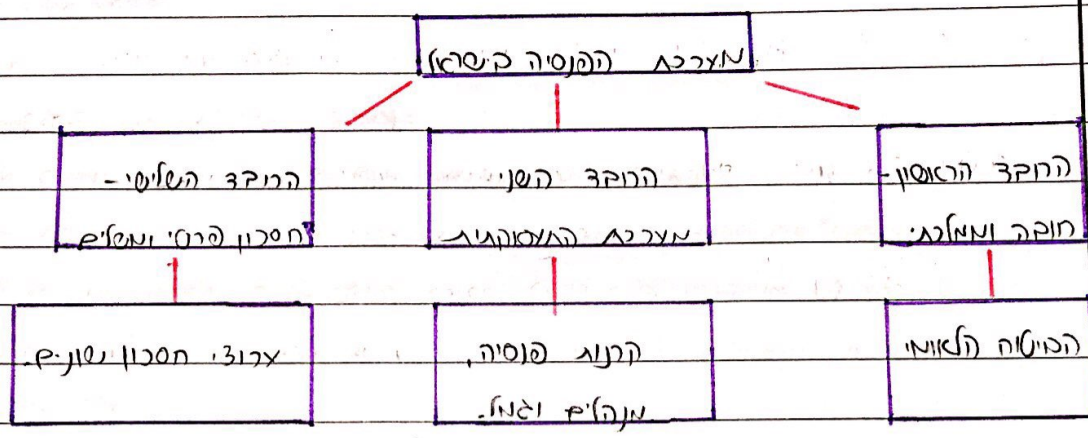 מערכת הפנסיה בישראל
הרובד הראשון -
חובה וממלכתי
הרובד השני
מערכת התעסוקתית
הרובד השלישי -
חסכון פרטי ומשלים
הביטוח הלאומי
קרנות פנסיה,
מנהלים וגמל.
ערוצי חסכון שונים.